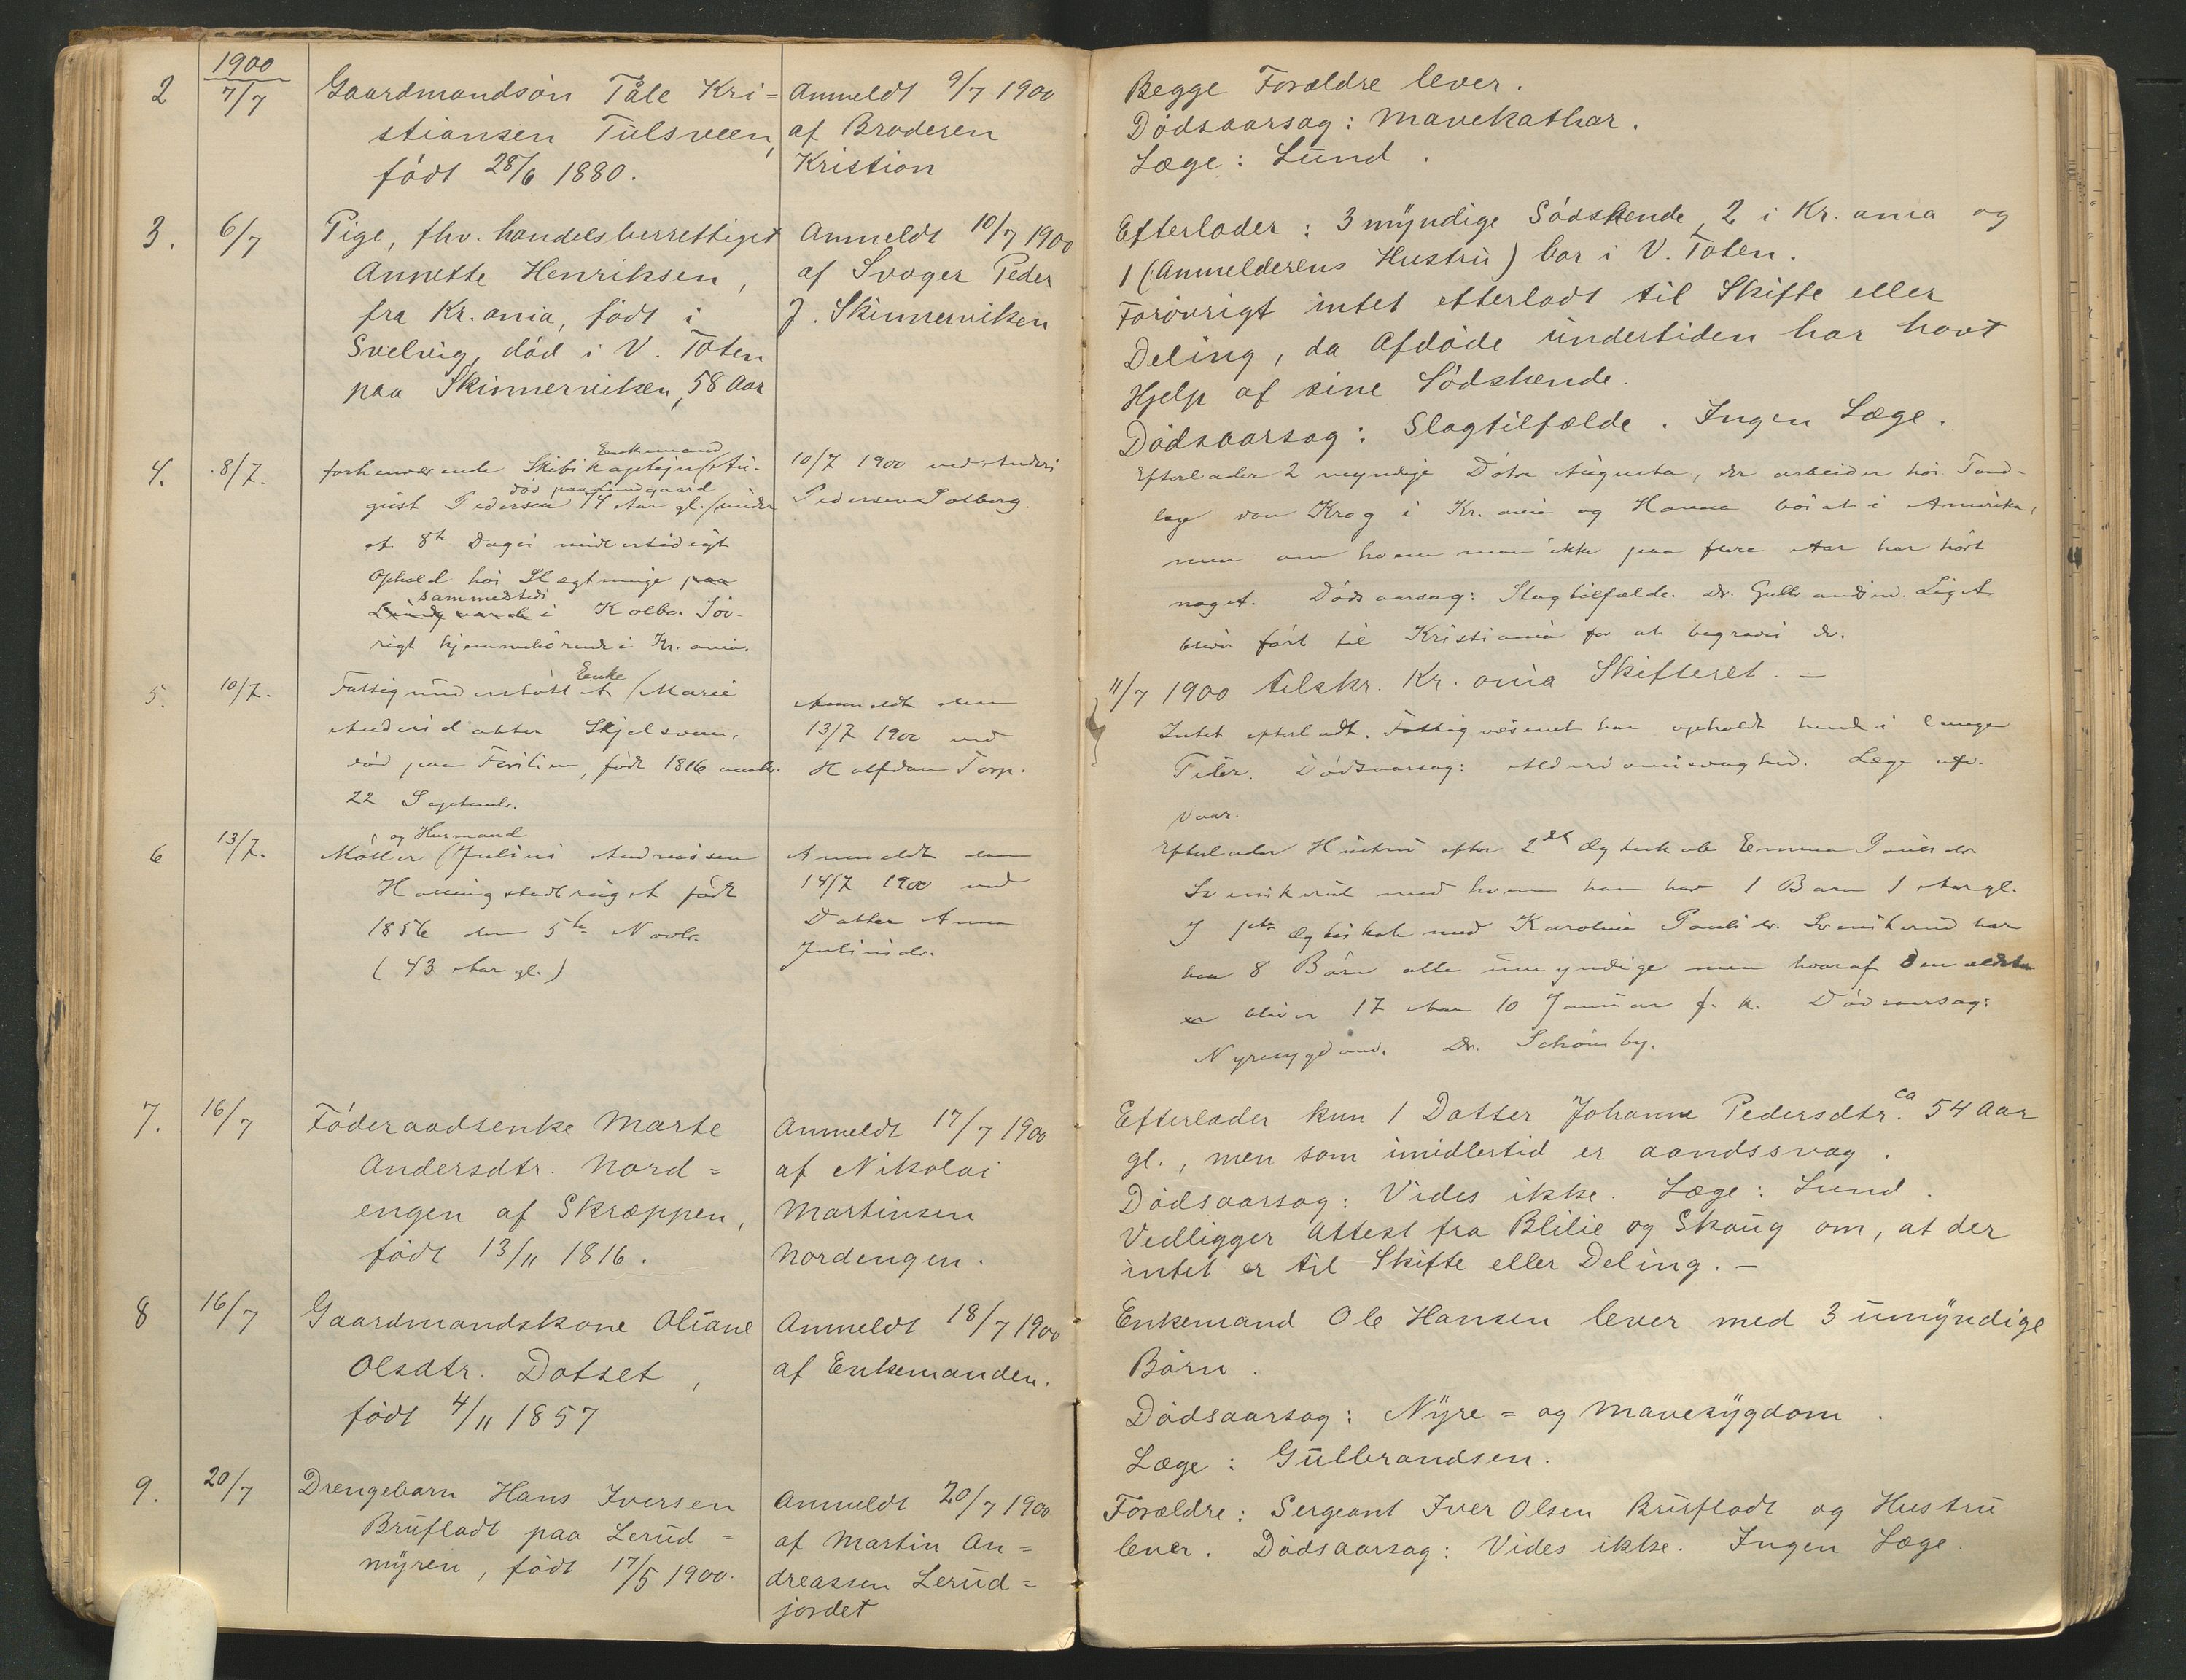 1900
2 7/7 Gaardmandsön Tåle Kri=
stiansen Tulsveen,
født 28/6 1880.
Anmeldt 9/7 1900
af Broderen
Kristian
Begge Forældre lever.
Dødsaarsag: Mavekathar.
Læge: Lund.
3. 6/7 Pige, fhv. handelsberettiget
Annette Henriksen,
fra Kr.ania, født i
Svelvig, død i V. Toten
paa Skinnerviken, 58 Aar
Anmeldt 10/7 1900
af Svoger Peder
J. Skinnerviken
Efterlader: 3 myndige Södskende, 2 i Kr.ania og
1 (Anmelderens Hustru) bor i V. Toten.
Forövrigt intet efterladt til Skifte eller
Deling, da Afdøde undertiden har havt
Hjelp af sine Södskende.
Dødsaarsag: Slagtilfælde. Ingen Læge.
4. 8/7. Enkemand
forhenværende Skibskaptejn (Au-
død paa Lundgaard
gust Pedersen 74 Aar gl. (under
et 8te Dages midlertidigt
Ophold hos Slægtninge paa
sammesteds
Lundgaard i Kolbu. Iøv-
rigt hjemmehörende i Kr.ania.
10/7 1900 ved Anders
Pedersen Solberg.
Efterlader 2 myndige Døtre Augusta, der arbeider hos Tand-
læge von Krog i Kr.ania og Hanna bosat i Amerika,
men om hvem man ikke paa flere Aar har hørt
noget. Dødsaarsag: Slagtilfælde. Dr. Gulbrandsen. Liget
bliver ført til Kristiania for at begraves der.
11/7 1900 tilskr. Kr.ania Skifteret. —
5. 10/7. Enke
Fattigunderstøttet (Marie
Andersdatter Skjelsveen,
død paa , født 1816
22 Septembr.
Anmeldt den
13/7 1900 ved
Halfdan Torp.
Intet efterladt. Fattigvæsenet har opholdt hende i lange
Tider. Dødsaarsag: Alderdomssvaghed. Læge
6 13/7. og Husmand
Møller (Julius Andreassen
født
1856 den 5te Novbr.
(43 Aar gl.)
Anmeldt den
14/7 1900 ved
Datter Anna
Juliusdr.
Efterlader Hustru efter 2det Ægteskab Emma Paulsdr.
Svenskerud med hvem han har 1 Barn 1 Aar gl.
I 1ste Ægteskab med Karoline Paulsdr. Svenskerud har
han 8 Børn alle umyndige men hvoraf den ældste
er bliver 17 Aar 10 Januar f. k. Dødsaarsag:
Nyresygdom. Dr. Schönby.
7. 16/7 Föderaadsenke Marte
Andersdtr. Nord=
engen af Skræppen,
født 13/11 1816.
Anmeldt 17/7 1900
af Nikolai
Martinsen
Nordengen.
Efterlader kun 1 Datter Johanne Pedersdtr. ca 54 Aar
gl., men som imidlertid er aandssvag.
Dødsaarsag: Vides ikke. Læge: Lund.
Vedligger Attest fra Blilie og Skaug om, at der
intet er til Skifte eller Deling. —
8 16/7 Gaardmandskone Oliane
Olsdtr. Dotset,
født 4/11 1857
Anmeldt 18/7 1900
af Enkemanden.
Enkemand Ole Hansen lever med 3 umyndige
Børn.
Dødsaarsag: Nyre= og Mavesygdom.
Læge: Gulbrandsen.
9. 20/7 Drengebarn Hans Iversen
Brufladt paa Lerud=
myren, født 17/5 1900.
Anmeldt 20/7 1900
af Martin An=
dreassen Lerud=
jordet
Forældre: Sergeant Iver Olsen Brufladt og Hustru
lever. Dødsaarsag: Vides ikke. Ingen Læge.